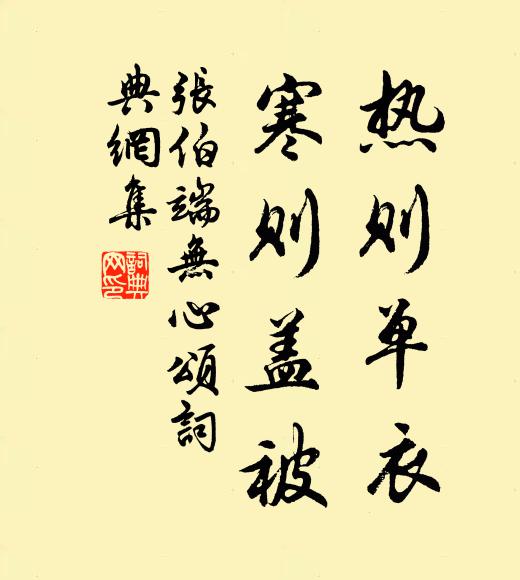 热则单衣
寒则盖被
張伯端無心頌詞
典網集
詞典
网印